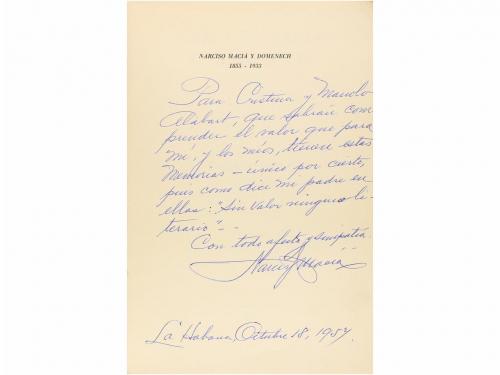 NARCISO MACIÁ Y DOMENECH
1855 - 1933
Para Cristina y Manolo
Alabart, que sabrán com
prender el valor que para
mí, y los míos, tienen estas
Memorias - único por cierto,
pues como dice mi padre en
ellas: "Sin valor ninguno li-
terario" - -
Con todo afecto y simpatía
Narciso Maciá
La Habana, Octubre 18, 1957.